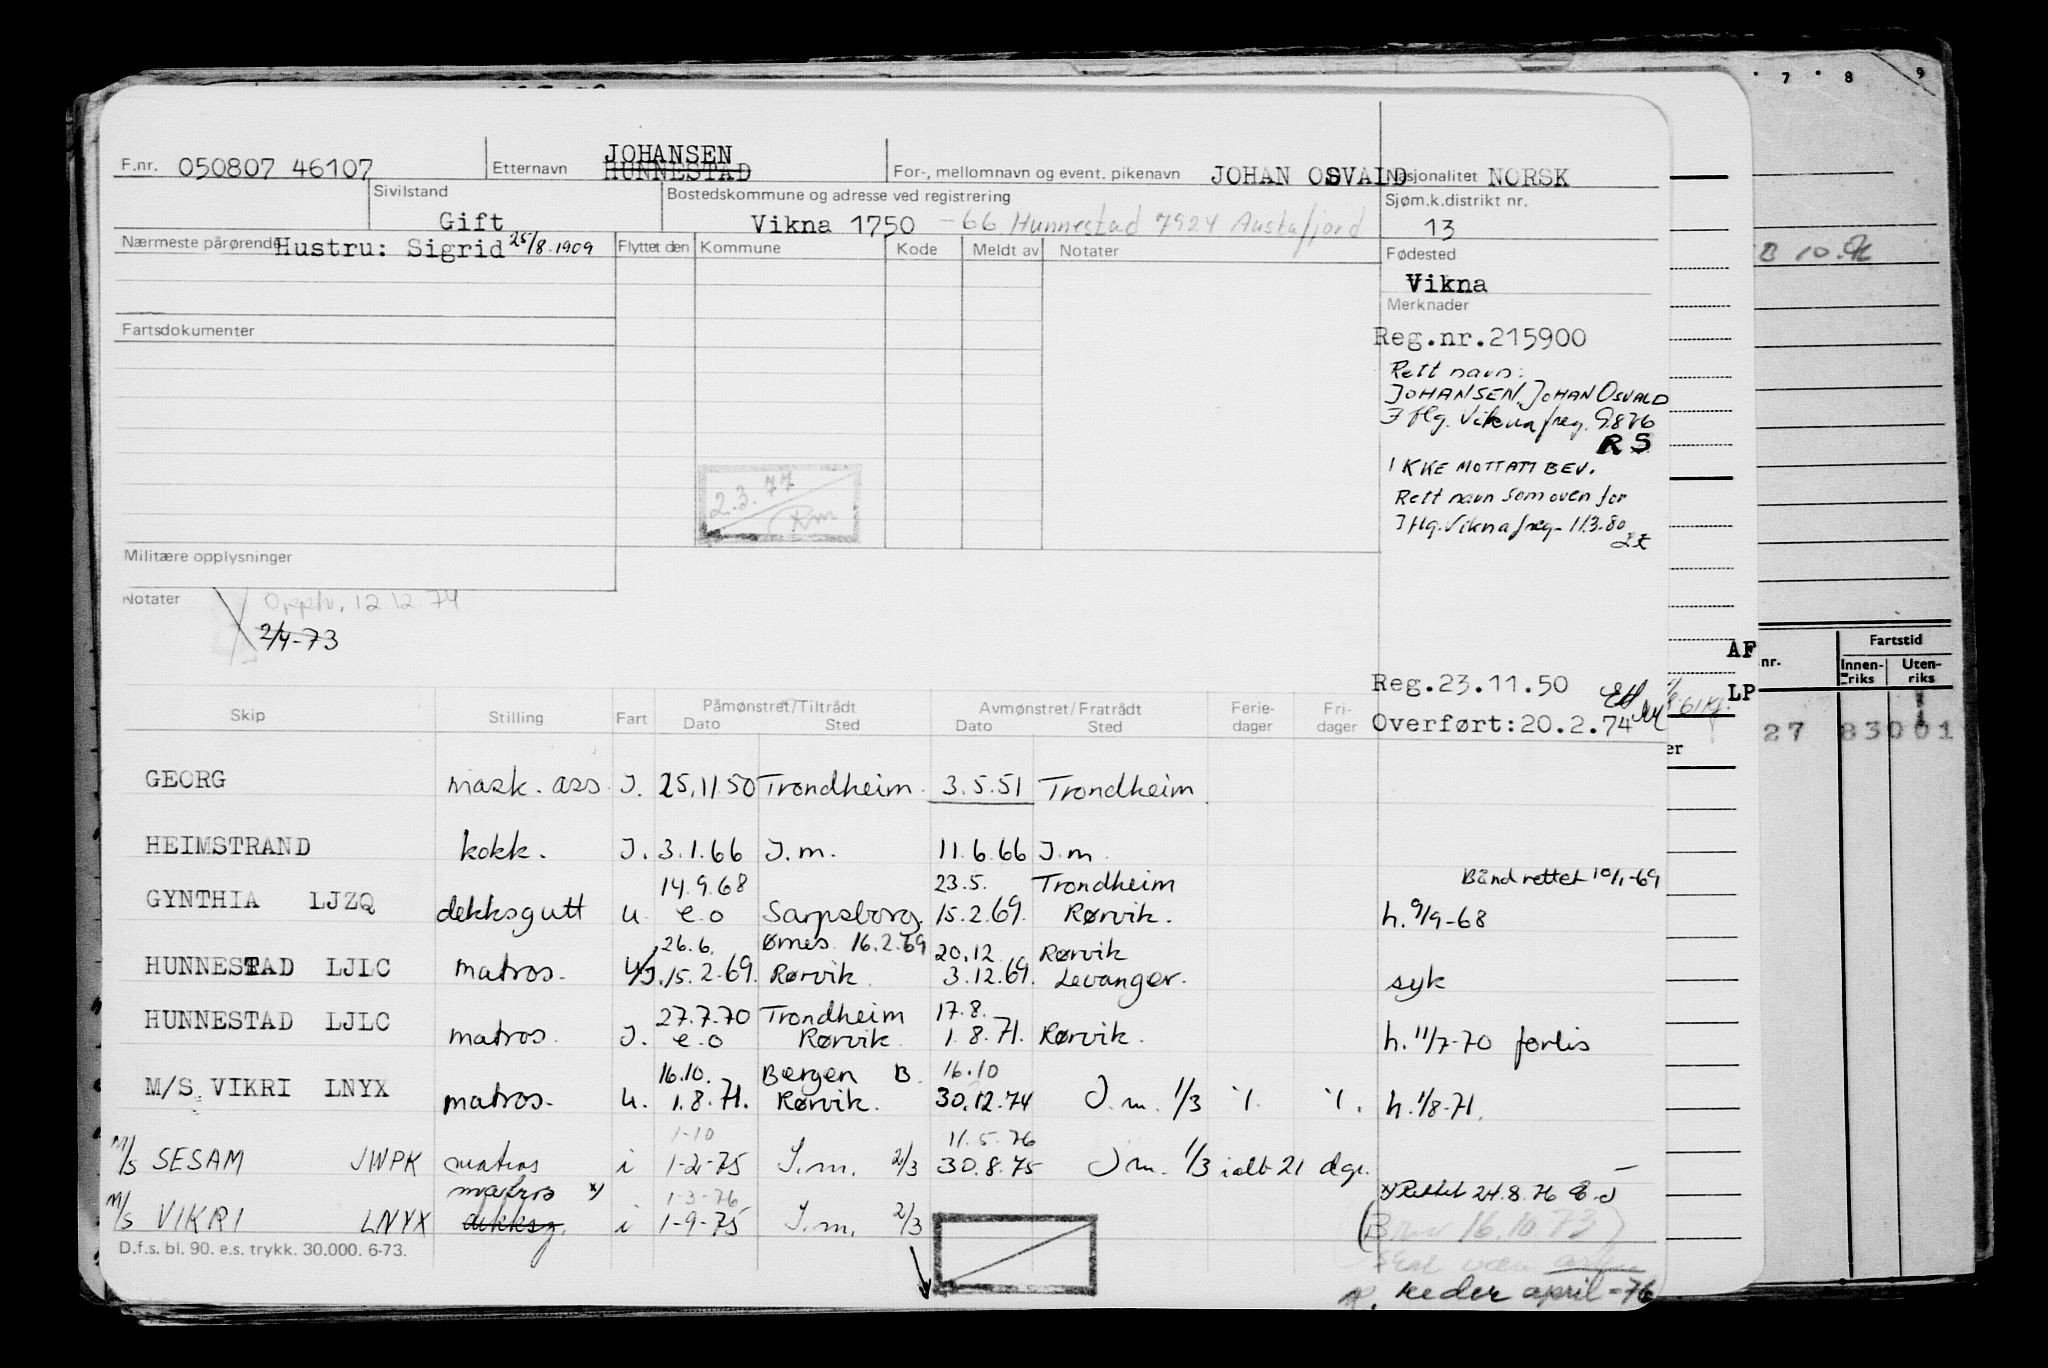 7 8 9
F.nr. 050807 46107
Etternavn JOHANSEN
HUNNESTAD
For-, mellomnavn og event. pikenavn JOHAN OSVALD
Nasjonalitet NORSK
Sivilstand
Gift
Bostedskommune og adresse ved registrering
Vikna 1750 - 66 Hunnestad 7924 Austafjord
Sjøm.k.distrikt nr.
13
Nærmeste pårørende Hustru: Sigrid 25/8.1909
Flyttet den Kommune Kode Meldt av Notater
Fødested
Vikna
Merknader
Reg.nr.215900
Rett navn:
JOHANSEN, JOHAN OSVALD
I flg. Vikna freg. 9.8 76
RS
IKKE MOTTATT BEV.
Rett navn som oven for
I flg. Vikna freg. 11.3.80
Fartsdokumenter
2.3.77
Rm
Militære opplysninger
Notater
Opph. 12.12.74
2/4-73
Reg.23.11.50
Overført:20.2.74
AF
LP
nr. Fartstid
Innen-riks Uten-riks
27 83001
er
Skip Stilling Fart Påmønstret/Tiltrådt Avmønstret/Fratrådt Ferie-dager Fri-dager
Dato Sted Dato Sted
GEORG mask. ass. I. 25.11.50 Trondheim. 3.5.51 Trondheim
HEIMSTRAND kokk. I. 3.1.66 I.m. 11.6.66 I.m.
14.9.68 23.5. Trondheim Bånd rettet 10/1-69
GYNTHIA LJZQ dekksgutt u. e.o Sarpsborg. 15.2.69. Rørvik. h. 9/9-68
26.6. Ørnes 16.2.69 20.12 Rørvik
HUNNESTAD LJLC matros. u/I. 15.2.69. Rørvik. 3.12.69. Levanger. syk
27.7.70 Trondheim 17.8.
HUNNESTAD LJLC matros. I. e.o Rørvik. 1.8.71. Rørvik. h. 11/7-70 forlis
16.10. Bergen B. 16.10
M/S VIKRI LNYX matros. u. 1.8.71. Rørvik. 30.12.74 I.m. 1/3 ./. ./. h. 1/8-71.
1-10 11.5.76
M/S SESAM JWPK matros i 1-2-75 I.m. 2/3 30.8.75 I m. 1/3 ialt 21 dgr. -
matros x) 1-3-76 x) Rettet 24.8.76
M/S VIKRI LNYX dekksg. i 1-9-75 I.m. 2/3
(Brev 16.10.73)
D.f.s. bl. 90. e.s. trykk. 30.000. 6-73.
reder april-76